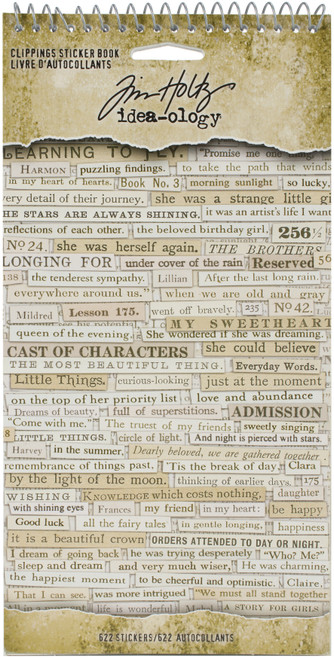 CLIPPINGS STICKER BOOK
LIVRE D'AUTOCOLLANTS
Tim Holtz
idea-ology
LEARNING TO FLY. "Promise me one
HARMON puzzling findings. to take the path that winds
in my heart of hearts. Book No. 3 morning sunlight so lucky
very detail of their journey. she was a strange little gi
HE STARS ARE ALWAYS SHINING. it was an artist's life I want
reflections of each other. the beloved birthday girl, 256½
No 24. she was herself again. THE BROTHERS
LONGING FOR under cover of the rain Reserved 56
as the tenderest sympathy. Lillian After the last long rain.
everywhere around us." when we are old and gray
Mildred Lesson 175. went off bravely. 235 No 42.
MY SWEETHEART
queen of the evening. She wondered if she was dreaming.
CAST OF CHARACTERS she could believe
THE MOST BEAUTIFUL THING. Everyday Words.
Little Things. curious-looking just at the moment
on the top of her priority list love and abundance
Dreams of beauty. full of superstitions. ADMISSION
"Come with me." The truest of my friends sweetly singing
8 LITTLE THINGS. circle of light. And night is pierced with stars.
Harvey in the summer. Dearly beloved, we are gathered together
remembrance of things past. 'Tis the break of day. Clara
by the light of the moon. thinking of earlier days. 175
WISHING KNOWLEDGE which costs nothing. daughter
with shining eyes Frances my friend in my heart: be happy
Good luck all the fairy tales in gentle longing, happiness
it is a beautiful crown ORDERS ATTENDED TO DAY OR NIGHT.
I dream of going back he was trying desperately "Who? Me?"
sleep and dream and very much wiser, He was charming.
the happiest moment to be cheerful and optimistic. Claire,
That I can see. was more intrigued "We must all stand together
life is wonderful A STORY FOR GIRLS
622 STICKERS/622 AUTOCOLLANTS